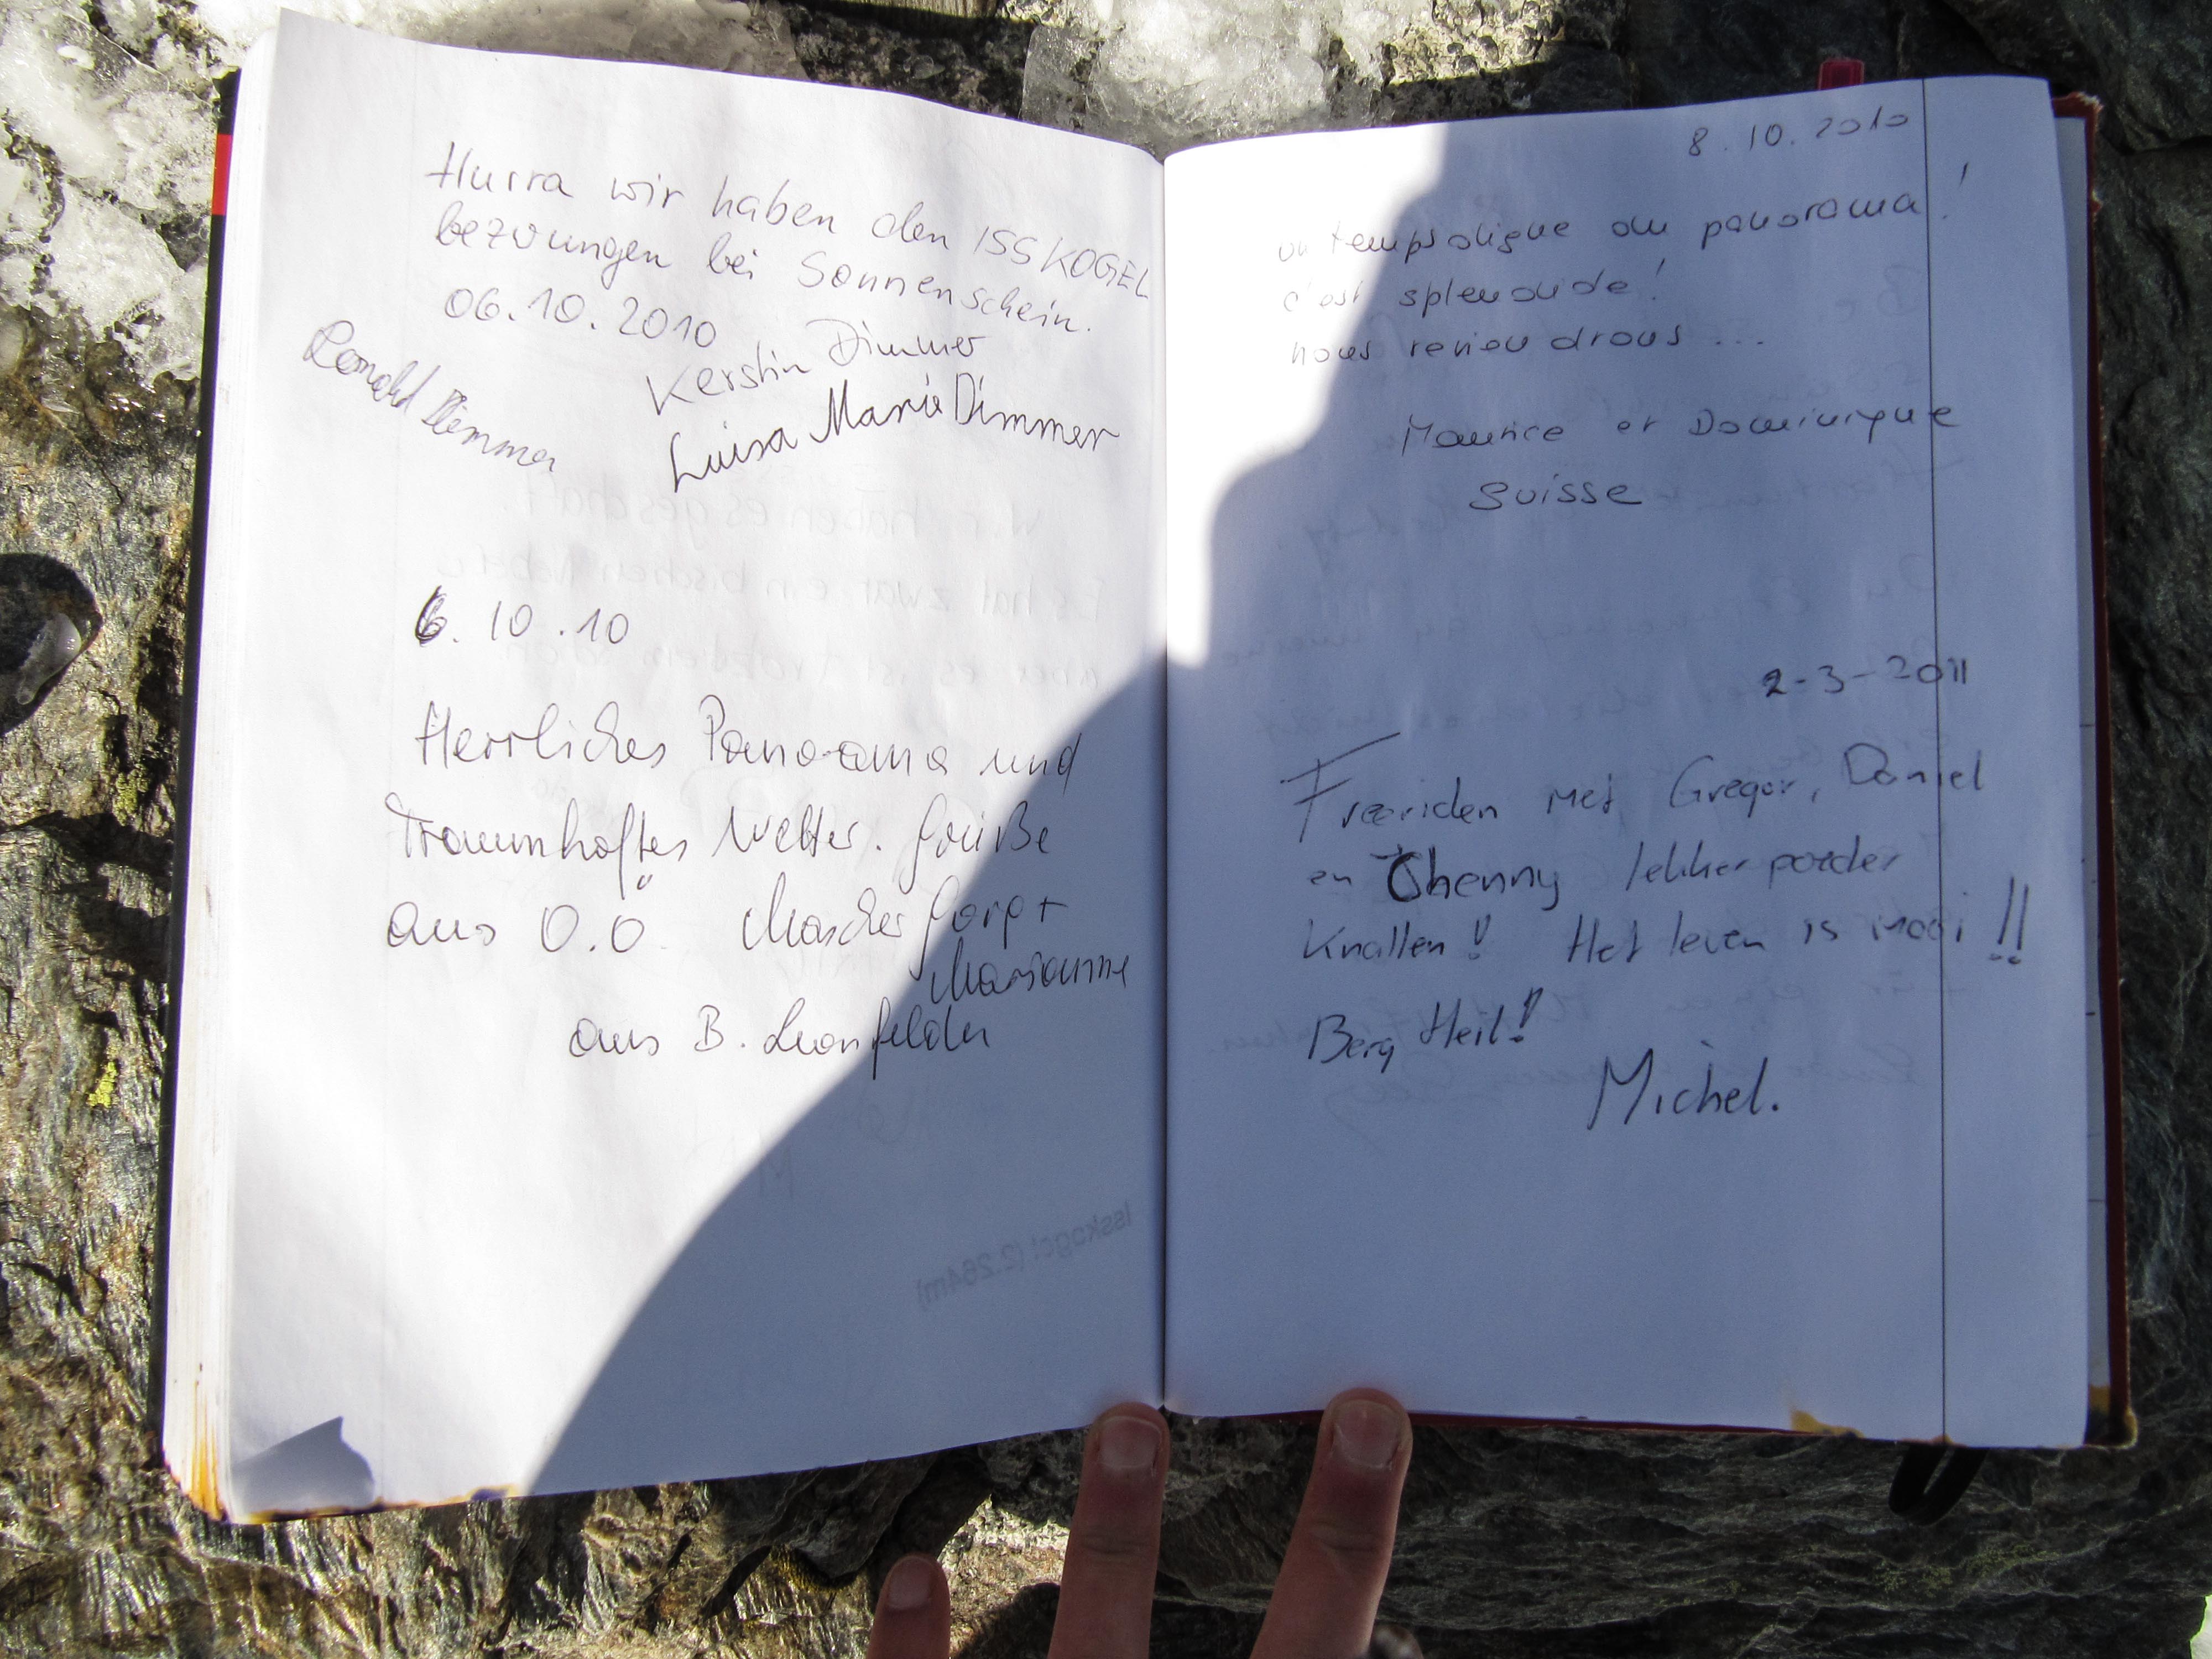 Hurra wir haben den ISSKOGEL
bezwungen bei Sonnenschein.
06.10.2010
Kerstin Dimmer
Ronald Dimmer
Luisa Marie Dimmer
6. 10 .10
Herrliches Panorama und
Traumhaftes Wetter. Grüße
aus O.Ö.
Marianne
aus B. Leonfelden
Isskogel (2.264m)
8.10.2010
un temps digne du panorama!
c'est splendide!
nous reviendrons ...
Maurice et Dominique
Suisse
2-3-2011
Freeriden met Gregor, Daniel
en Chenny lekker poeder
Knallen! Het leven is mooi!!
Berg Heil!
Michel.